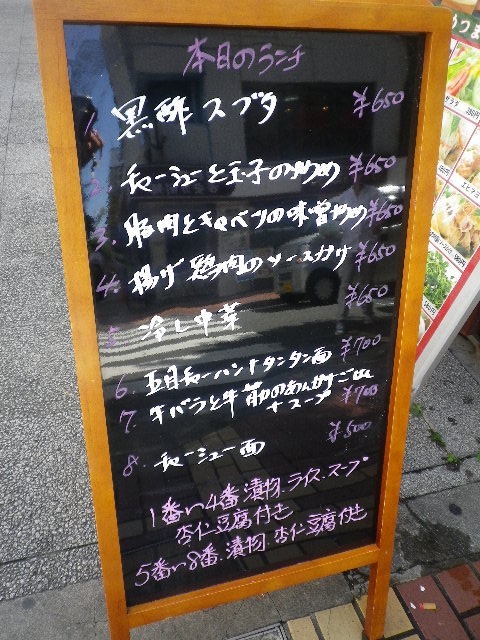 本日のランチ
1. 黒酢スブタ ¥650
2. チャーシューと玉子の炒め ¥650
3. 豚肉とキャベツの味噌炒め ¥650
4. 揚げ鶏肉のソースかけ ¥650
5. 冷し中華 ¥650
6. 五目チャーハン+タンタン面 ¥700
7. 牛バラと牛筋のあんかけごはん
+スープ ¥700
8. チャーシュー面 ¥500
1番〜4番 漬物.ライス.スープ
杏仁豆腐付き
5番〜8番.漬物 杏仁豆腐付き